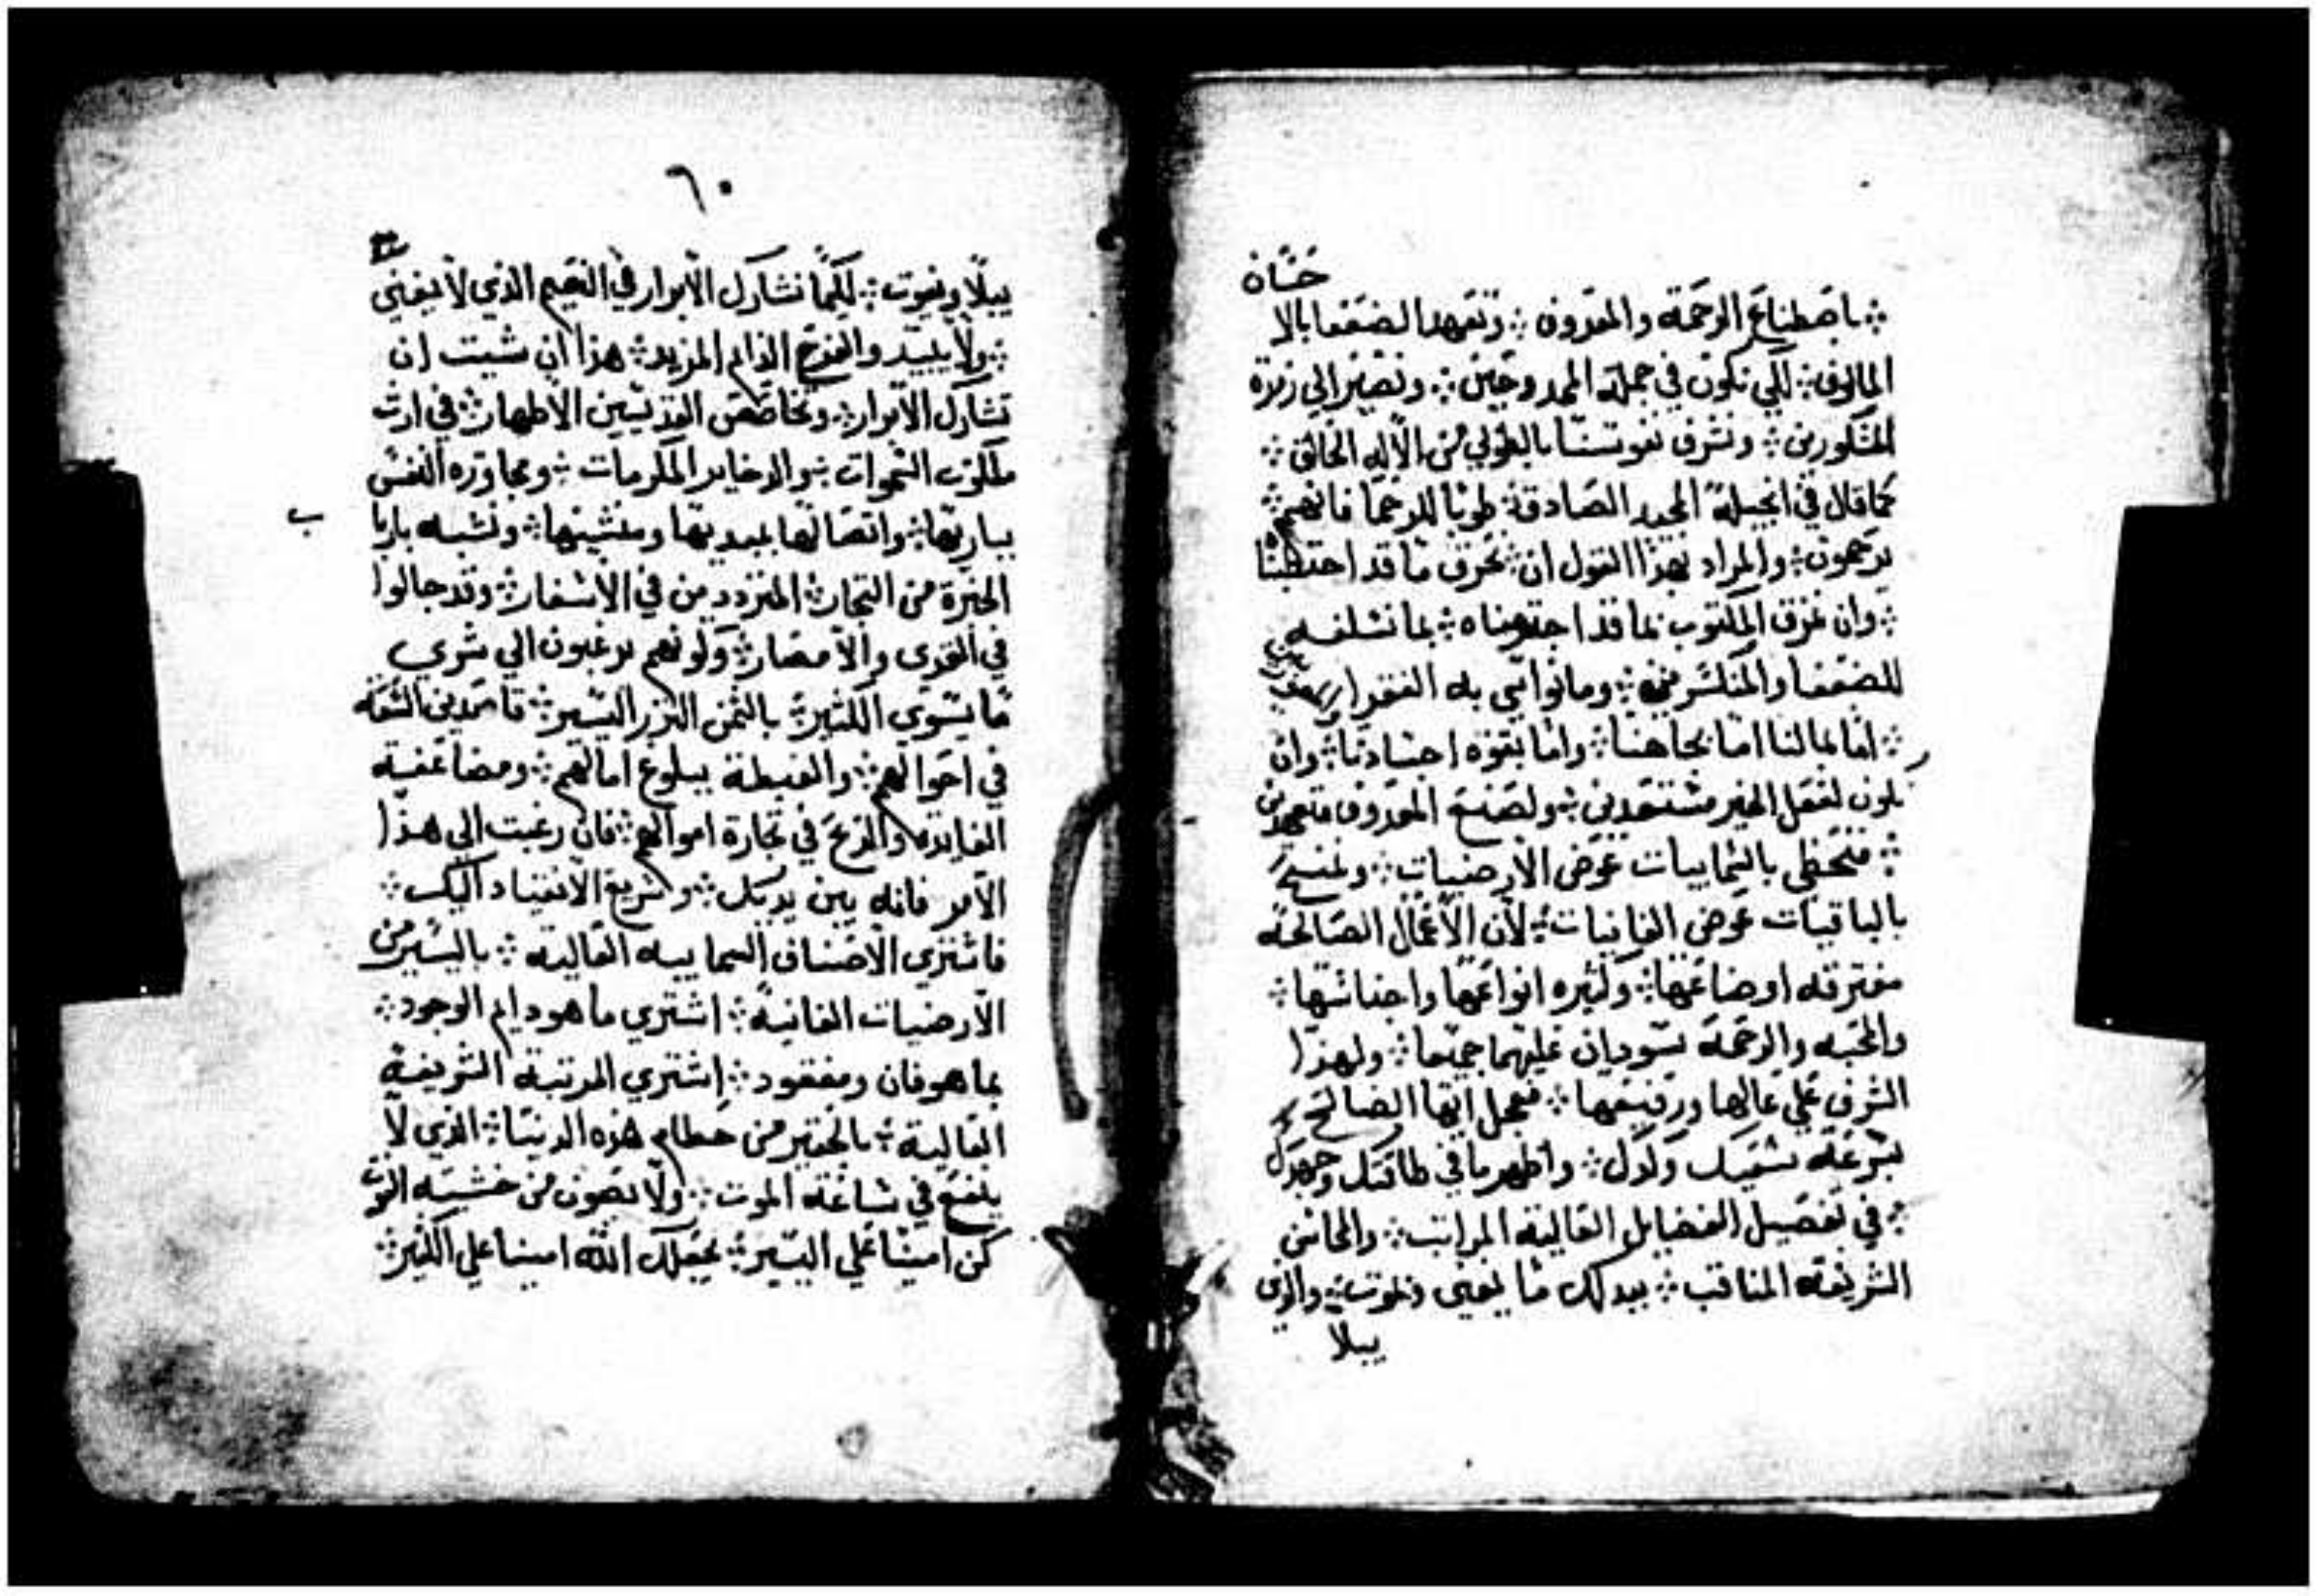 حسان
؞ باصطناع الرحمة والمعروف ؞ وتعهد الضعفا بالا
المالوف ؞ لكي نكون في جملة الممدوحين ؞ ونصير الي زمرة
المشكورين ؞ ونشرف نفوسنا بالطوبي من الاله الخالق ؞
كما قال في انجيله المجيد الصادقة ؞ طوبا للرحما فانهم
يرحمون ؞ والمراد بهذا القول ان ؞ نحرق ما قد احتطبنا
؞ وان نمزق المكتوب بما قد اجترمناه ؞ بما نسلفه
للضعفا والمنكسرين ؞ وما نواسي به الفقرا
؞ اما بمالنا اما بجاهنا ؞ واما بقوة اجسادنا ؞ وان
نكون لفعل الخير مستعدين ؞ ولصنع المعروف متعهدين
؞ فنحظي بالسماييات عوض الارضيات ؞
بالباقيات عوض الفانيات ؞ لان الاعمال الصالحة
مفترقه اوضاعها ؞ وكثيره انواعها واجناسها ؞
والمحبه والرحمة يسودان عليهما جميعا ؞ ولهذا
الشرف علي عاليها ورفيعها ؞ فعجل ايها الصالح
بسرعة سعيك وكدك ؞ واظهر ما في طاقتك وجهدك
؞ في تفصيل الفضايل العالية المراتب ؞ والمحاسن
الشريفه المناقب ؞ ببدلك ما يفني ويموت ؞ والذي
يبلا
٦٠
يبلا ويفوت ؞ لكيما تشارك الابرار في النعيم الذي لا يفني
؞ ولا يبيد والفرح الدايم المزيد ؞ هذا ان شيت ان
تشارك الابرار ؞ وتخاصص القديسين الاطهار ؞ في ارث
ملكوت السموات ؞ والدخاير المكرمات ؞ ومجاورة النفس
بباريها ؞ واتصالها بمبديها ومنشيها ؞ وتشبه باربا
ب
الخبرة من التجار ؞ المترددين في الاسفار ؞ وقد جالوا
في القري والامصار ؞ وكونهم يرغبون الي شري
ما يسوي الكثير ؞ بالثمن النزر اليسير ؞ قاصدين السعة
في احوالهم ؞ والغبطة ببلوغ امالهم ؞ ومضاعفة
الفايدة والربح في تجارة اموالهم ؞ فان رغبت الي هذا
الامر فانه بين يديك ؞ وسريع الانقياد اليك ؞
فاشتري الاصناف السماييه العاليه ؞ باليسير من
الارضيات الفانية ؞ اشتري ما هو دايم الوجود ؞
بما هو فان ومفقود ؞ اشتري المرتبة الشريفة
العالية ؞ بالحقير من حطام هذه الدنيا ؞ الذي لا
ينفع في ساعة الموت ؞ ولا يصون من خشية الفوت
كن امينا علي اليسير ؞ يجعلك الله امينا علي الكثير ؞